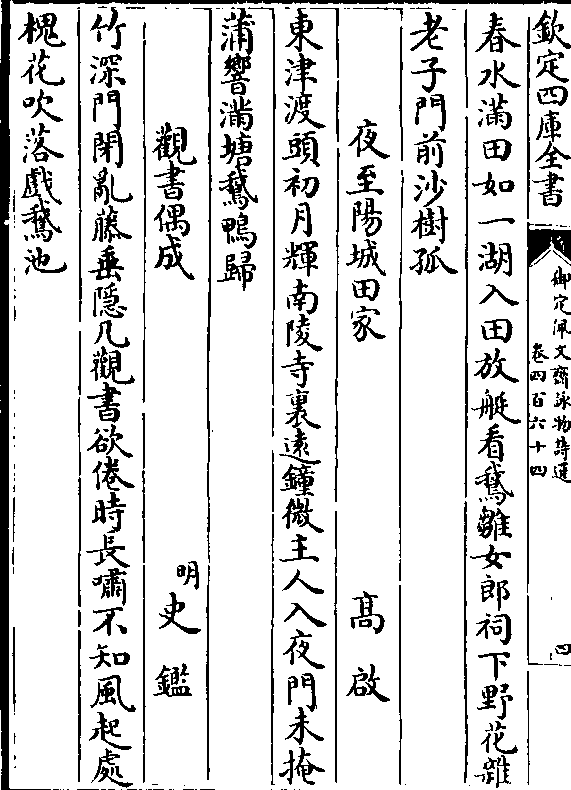 欽定四庫全書
御定佩文齋詠物詩選
卷四百六十四
四
春水滿田如一湖入田放艇看鵝雛女郎祠下野花雜
老子門前沙樹孤
夜至陽城田家
高啟
東津渡頭初月輝南陵寺裏遠鐘微主人入夜門未掩
蒲響滿塘鵝鴨歸
觀書偶成
明
史鑑
竹深門閉亂藤垂隱几觀書欲倦時長嘯不知風起處
槐花吹落戲鵝池